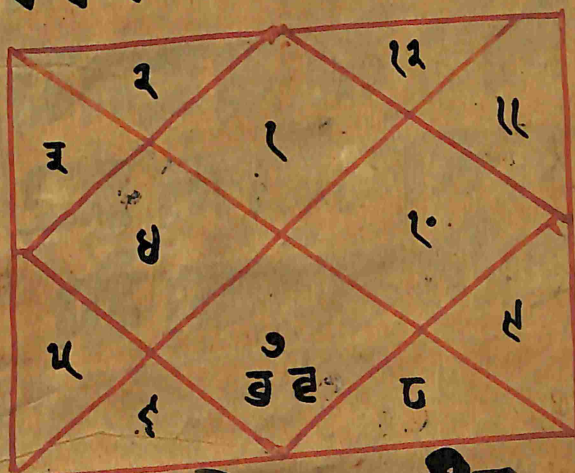 २ १२
३ १ ११
४ १०
५ ७ ९
बु व
६ ८